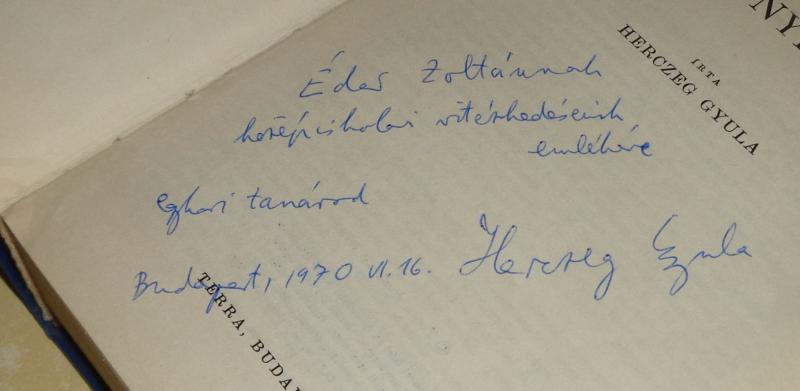 NY
ÍRTA
HERCZEG GYULA
Édes Zoltánnak
középiskolai vitézkedéseink
emlékére
egykori tanárod
Budapest, 1970 VI. 16. Herczeg Gyula
TERRA, BUDA